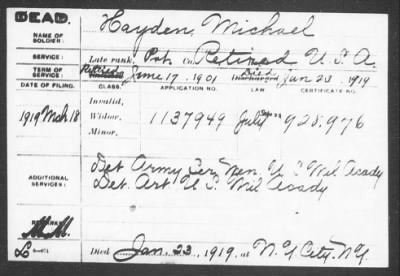 DEAD.
NAME OF SOLDIER: Hayden, Michael
SERVICE: Late rank, Pvt Co. Retired U. S. A.
TERM OF SERVICE: Retired June 17, 1901 Died Jan 23, 1919
DATE OF FILING. CLASS. APPLICATION NO. LAW CERTIFICATE NO.
Invalid,
1919 Mch 18 Widow, 1137949 July 928.976
Minor,
ADDITIONAL SERVICES: Det Army Ser Men. U S Mil Acady
Det. Art. U S Mil Acady
REMARKS:
Died Jan. 23, 1919, at N.Y City. N.Y.